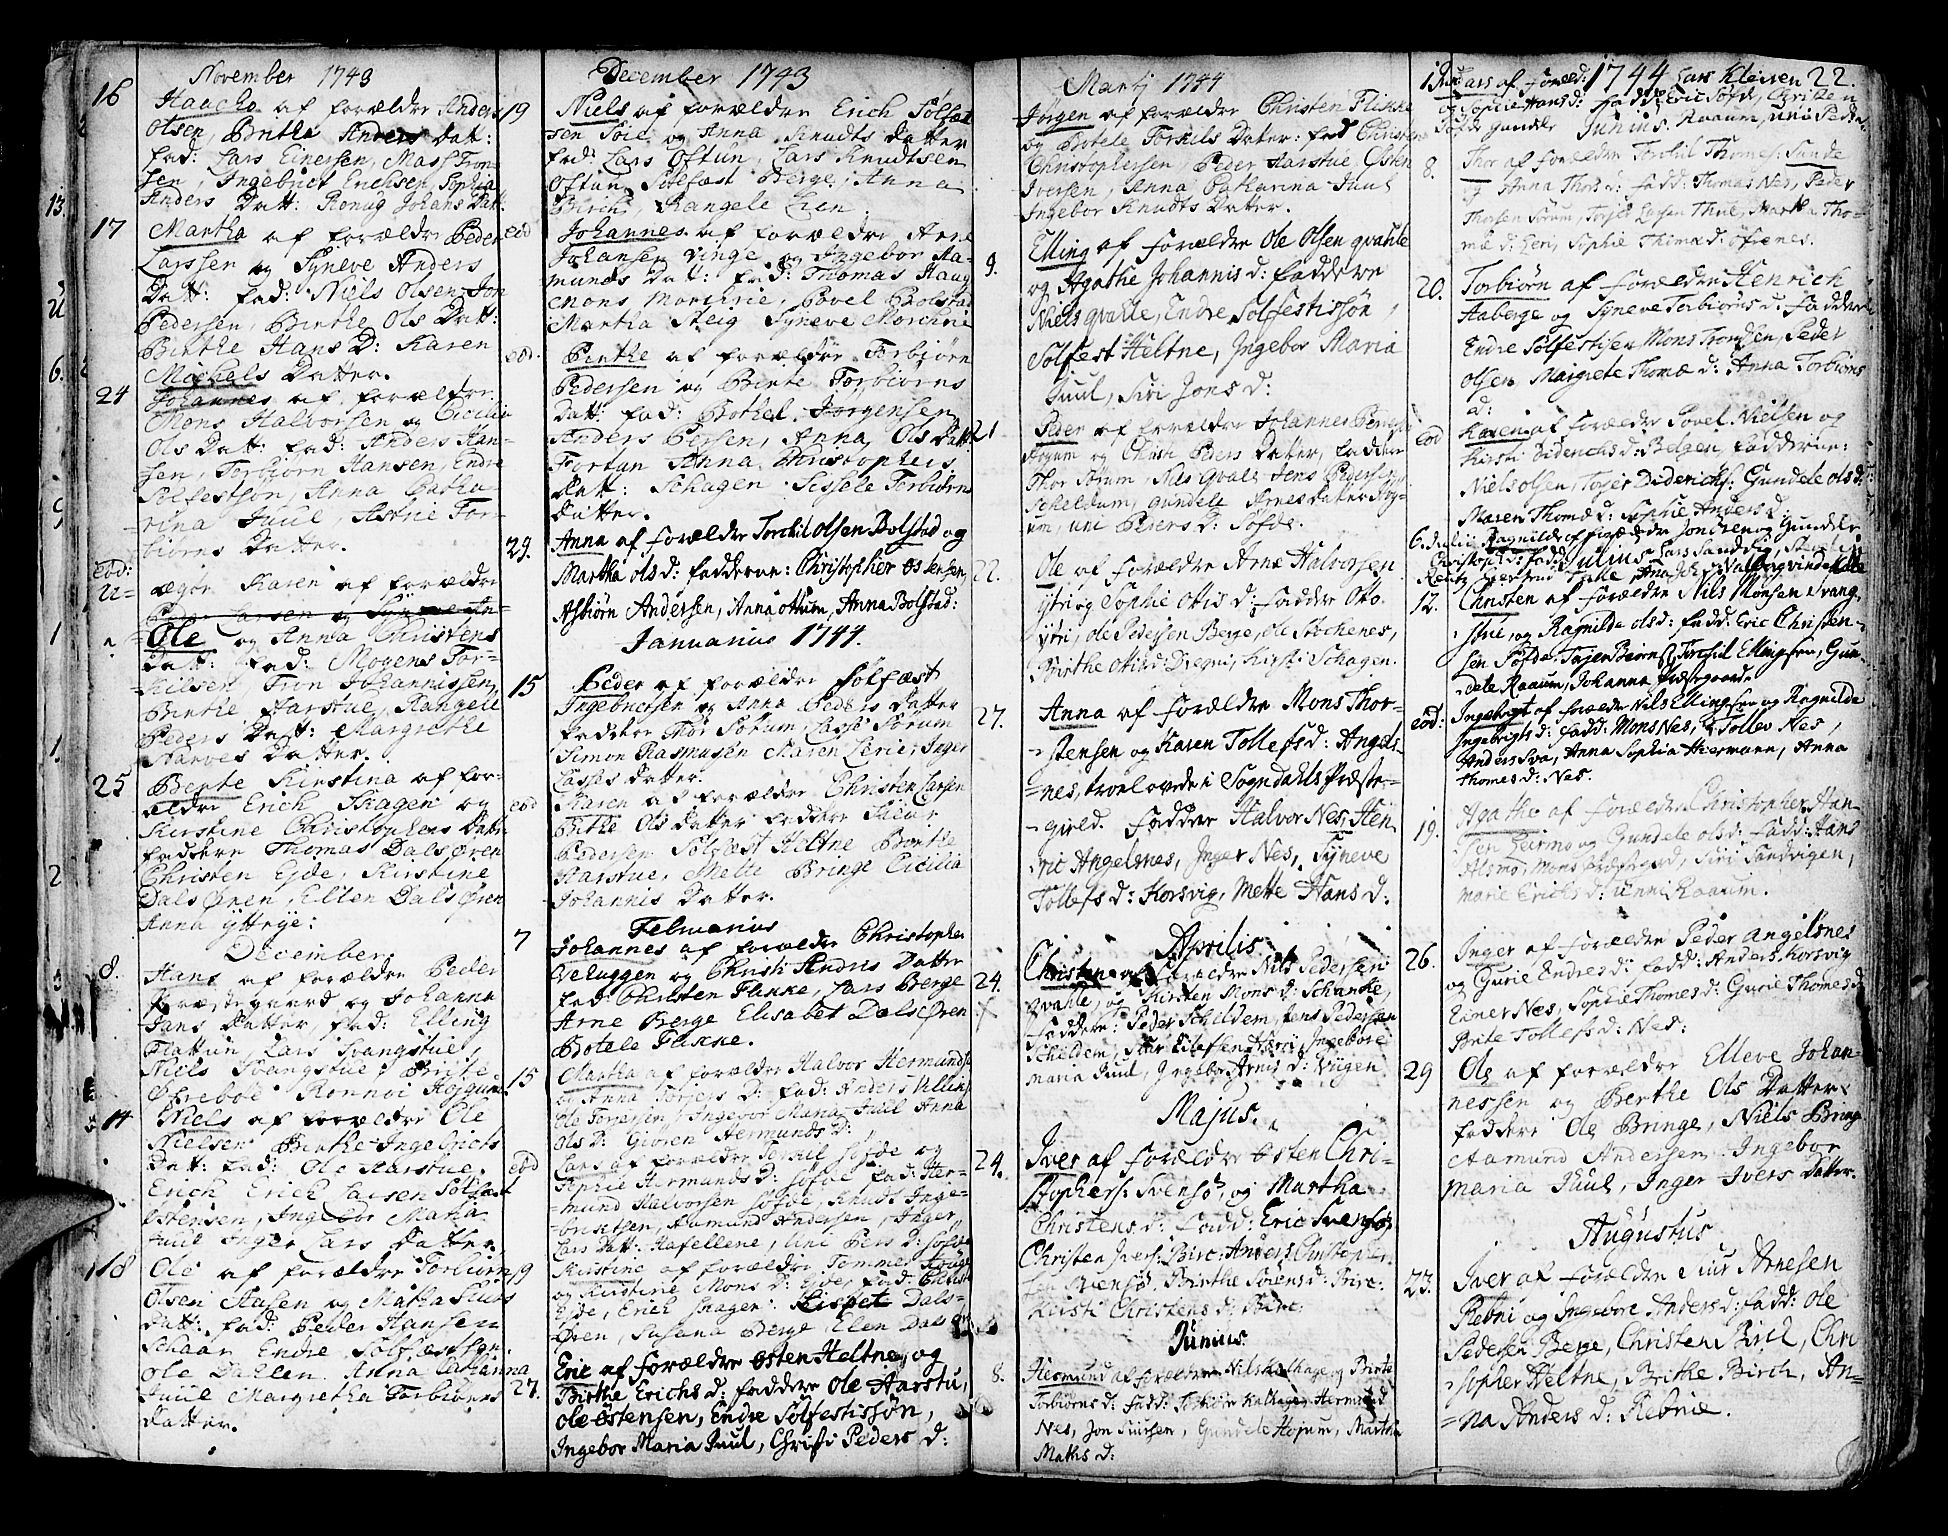 November 1743
16 Haacho af forældre Anders
Olsen, Brithe Anders Datt:
fad: Lars Einersen, Mass Tron-
sen, Ingebrict Erichsen, Sophia
Anders Datt: Ronug Johans Datt.
17 Martha af forældre Peder
Larssen og Syneve Anders
Datt: fad: Niels Olsen, Jon
Pedersen, Birthe Ols Datt:
Birthe Hans D: Karen
Mochels Datter.
24 Johannes af forældre
Mons Halvorsen og Cicilia
Ols Datt: fad: Anders Han-
sen, Torbiørn Hansen, Endre
Solfestsøn, Anna Catha-
rina Juul, Astrie Tor-
biørns Datter.
eod: Karen af forældre
Peder Larsen og Syneve An-
Ole og Anna Christens
Datt: fad: Mogens Tor-
kilsen, Tron Johannissen,
Birthe Aarstue, Rangele
Peders Datt: Margrethe
Datter.
25 Berte Kirstina af for-
ældre Erich Skagen og
Kirstine Christophers Datt:
faddere Thomas Dalsøren
Christen Eyde, Kirstine
Dalsøren, Ellen Dalsøren
Anna Yttrye:
December
8. Hans af forældre Peder
Præstegaard og Johanna
Jans Datter, fad: Elling
Flattun, Lars Svangstue,
Niels Svangstue, Brite
Øfrebøe Ronnoi
Niels af forældre Ole
Nielsen Birthe Ingebricts
Datt: fad: Ole Aarstue.
Erich Erich Larsen Solfast
Østensen, Ingebor Maria
Juul Inger Lars Datter.
18 Ole af forældre Torbiørn
Olsen Aasen og Martha Siurs
Datt: fad: Peder Hansen
Schaar Endre Solfestsøn.
Ole Dahlen Anna Catharina
Juul Margretha Torbiørns
Datter.
December 1743
19 Niels af forældre Erich Solfæst
sen Foie og Anna Knudts Datter
fad: Lars Oftun, Lars Knudtsen
Oftun Solfæst Berge Anna
Birch, Rangele Lien.
eod Johannes af forældre Arne
Johansen Vinge og Ingebor Aa-
munds Datt: fad: Thomas Haug
Mons Morchrie, Povel Bolstad
Martha Steig Syneve Morchrie
eod. Birthe af forældre Torbiørn
Pedersen og Birte Torbiørns
Datt: fad: Bothel Jørgensen
Anders Persen, Anna Ols Datt:
Fortun Anna Christophers
Datt: Schagen Sissele Torbiørns
Datter.
29. Anna af forældre Torchil Olsen Bolstad og
Martha Ols d: fadderne: Christopher Østensen,
Asbiørn Andersen, Anna Ottum, Anna Bolstad:
Januarius 1744.
15 Peder af forældre Solfæst
Ingebrictsen og Anna Peders Datter
faddere Thor Sorum Lasse Sorum
Simon Rasmusen Maren Inger
Lasses Datter.
eod Karen af forældre Christen Larsen
Birthe Ols Datter faddere Siur
Pedersen Solfæst Heltne Birthe
Aarstue, Mette Bringe Cicilia
Johannis Datter.
Februarius
7 Johannes af forældre Christopher
og Christi Andris Datter
fad: Christen Flikke, Lars Berge
Arne Berge Elisabet Dalsøren
Botele Flikke.
15 Martha af forældre Halvor Hermundsen
og Anna Torjers D: fad: Anders
Ole Torgersen, Ingebor Maria Juul Anna
Ols D: Gioren Hermunds D:
eod Lars af forældre Torkil Søfde og
Sophie Hermunds D: Søfde fad: Her-
mund Halvorsen Søfde Knud Inge-
brictsen, Aamund Andersen, Inger
Lars Datt: Hafellene, Uni Pers D: Søfde
19 Kirstine af forældre Tommes
og Kirstine Mons D: Eyde, fad: Christen
Eyde, Erich Skagen: Lispet Dals-
øren, Susana Berge, Elen Dalsøren
27. Eric af forældre Østen Heltne, og
Birthe Erichs d: faddere Ole Aarstu,
Ole Østensen, Endre Solfestissøn,
Ingebor Maria Juul, Christi Peders d:
Martj 1744
Jørgen af forældre Christen Flikke
og Botele Torkils Dater: fad Christen
Christophersen Peder Aarstue Østen
Iversen, Anna Catharina Juul
Ingebor Knudts Datter.
9. Elling af forældre Ole Olsen Qvahle
og Agathe Johannis d: faddere
Niels Qvahle, Endre Solfestissøn,
Solfest Heltne, Ingebor Maria
Juul, Siri Jons d:
21 Peder af forældre Johannes
og Christi Peders Datter, faddere
Thor Sorum, Nils Qvale, Jens Pedersen
Scheldum, Gundele
um, Uni Peders d: Søfde.
22. Ole af forældre Arne Halvorsen
Ytri og Sophie Ottis d: faddere Otto
Ytri, Ole Pedersen Berge, Ole Støchenes,
Birthe Ottis d: Kirsti Schagen.
27. Anna af forældre Mons Thor-
stensen og Karen Tollefs d: Angels-
nes, trolovede i Sogndahls Præste-
gield. faddere Halvor Nes, Hen-
ric Angelsnes, Inger Nes, Syneve
Tollefs d: Korsvig, Mette Hans d:
Aprilis
24. Christen af forældre Nils Pedersen
Qvahle, og Kirsten Mons d: Schanke,
faddere: Peder Scheldem, Jens Pedersen
Scheldem, Siur Ellefsen Ingebore
Maria Juul, Ingebor Arnis d: Nügen
Majus.
24. Iver af forældre Østen Chri-
stophers: Svensø, og Martha
Christens d: fadd: Eric Svensø,
Christen Ivers: Birc, Anders Christopher-
sen Svensø, Birthe Sørens d:
Kirsti Christens d: Birc:
Junius
8. Hermund af forældre Nils Kalhage og Birte
Torbiørns d: fadd: Torbiørn Kalhage Hermund
Nes, Jon Siursen, Gundele Høium, Martha
Mathis d:
1744 22.
Lars af foræld: Lars Kleiven
og Sophie Hans d: fadd: Eric Søfde, Christen
Søfde Gundele Raaum, Uni Peders d:
Junius.
8. Thor af forældre Torchil Thomes: Sande
og Anna Thors d: fadd: Thomas Nes, Peder
Thorsen Sorum, Torjer Larsen Thue, Martha Tho-
mæ d: Lien, Sophie Thomæ d:
20. Torbiørn af forældre Henrich
Aaberge og Syneve Torbiørns d: faddere
Endre Solfestisen Mons Tronssen, Peder
Olsen Margrete Thomæ d: Anna Torbiørns
d:
eod Karen af forældre Povel Nielsen og
Kirsti Diderichs d: Bolgen, fadderne:
Niels Olsen, Torjer Diderichs: Gundele Ols d:
Maren Thomæ d: Sophie Anders d:
6. Julii Ragnilde af forældre Jon og Gundele
Christophers d: fadd:
Julius
12. Christen af forældre Nils Monsen Svang-
stue, og Ragnilda Ols d: fadd: Eric Christen-
sen Søfde, Torchil Ellingsen, Gun-
dele Raaum, Johanna Præstegaard.
eod: Ingebrigt af forældre Nils Ellingsen og Ragnilde
Ingebrigts d: fadd: Mons Nes, Tollev Nes,
Anders Sva, Anna Sophia Hiermann, Anna
Thomes d: Nes.
19. Agathe af forældre Christopher Han-
sen og Gundele Ols d: fadd: Hans
Mons Præstegard, Siri Sandvigen,
Marie Erichs d: Unni Raaum.
26. Inger af forældre Peder Angelsnes
og Gurie Endres d: fadd: Anders Korsvig
Einer Nes, Sophie Thomes d: Gurie Thomes d
Brite Tollefs d: Nes:
29 Ole af forældre Elleve Johan-
nessen og Berthe Ols Datter
faddere Ole Bringe, Niels Bringe
Aamund Andersen Ingebor
Maria Juul, Inger Ivers Datter.
Augustus
23. Iver af forældre Siur Arnesen
Rebni og Ingebore Anders d: fadd: Ole
Pedersen Berge, Christen Birch, Chri-
stopher Heltne, Brithe Birch, An-
na Anders d: Rebnie.